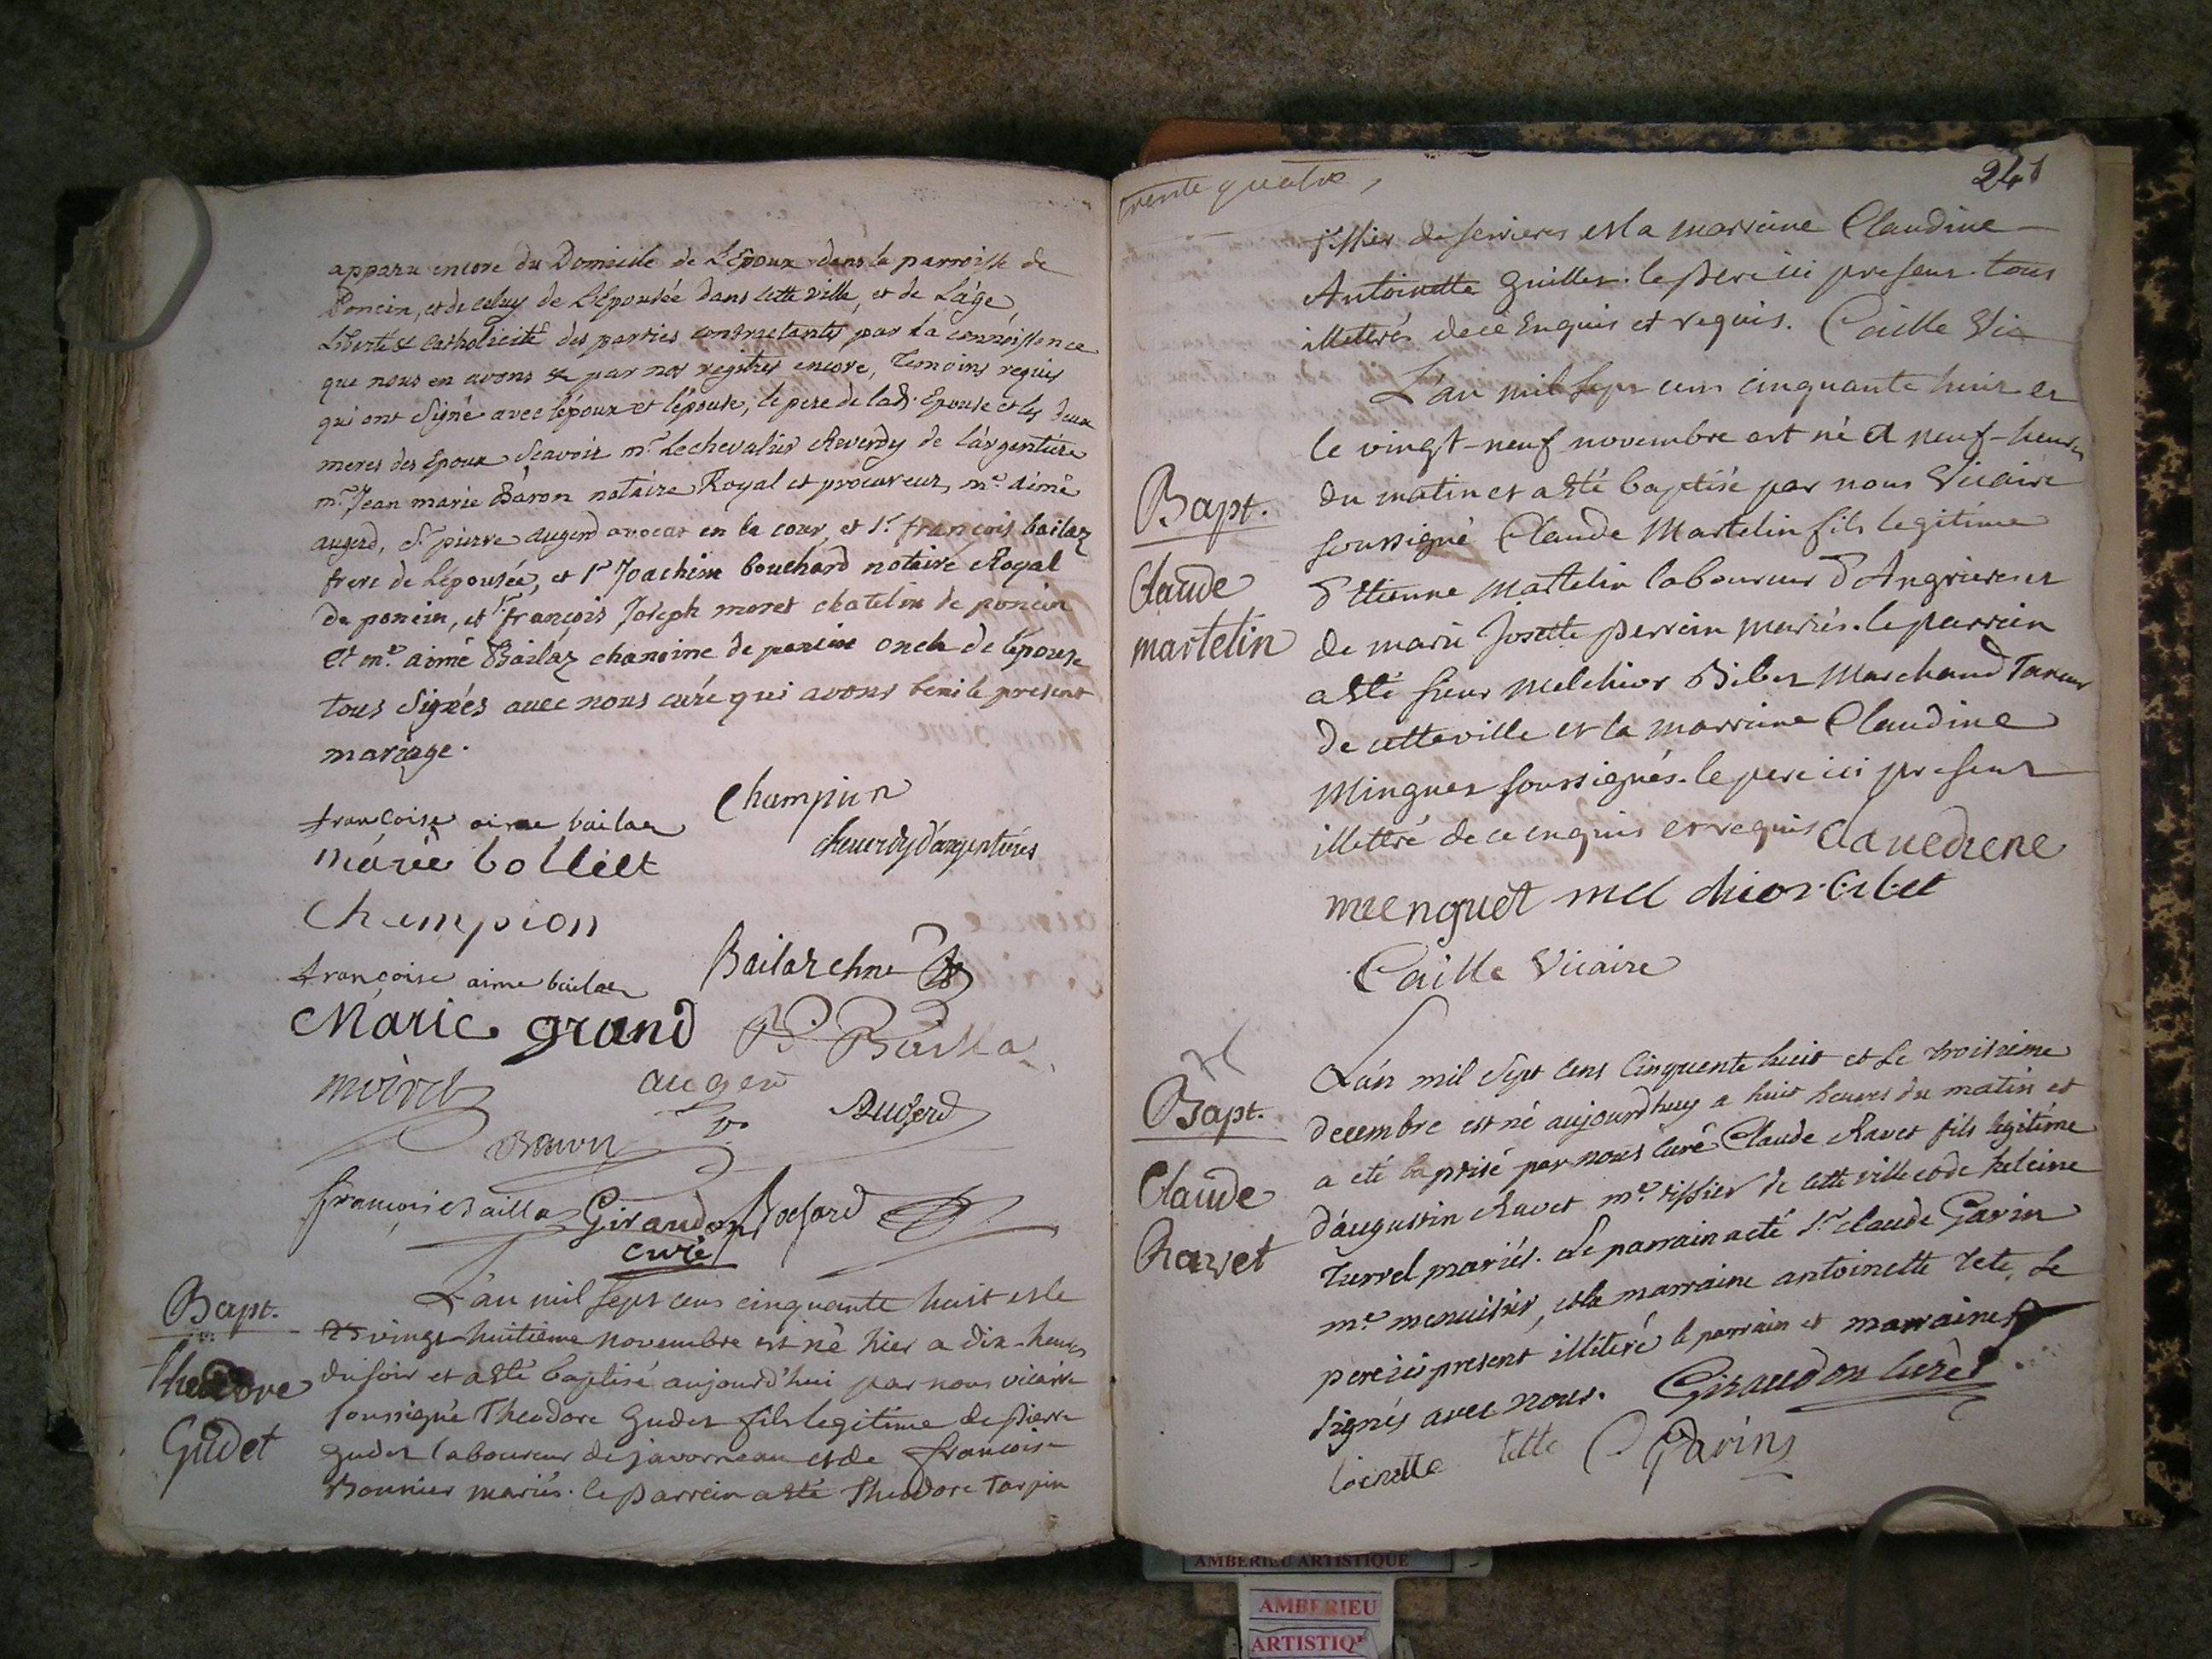 apparu encore du Domicille de L'Epoux dans la parroisse de
Poncin, et de celuy de L'Epousée dans cette ville, et de L'age
Liberté & Catholicité des parties contractantes par la connoissence
que nous en avons & par nos regitres encore, Temoins requis
qui ont signé avec l'époux et l'épouse, le pere de lad. Epouse et les deux
meres des Epoux Scavoir mr. Le chevalier Reverdy de L'argentiere
mr. Jean marie Baron notaire Royal et procureur, me. aimé
augerd, Sr. pierre augerd avocat en la cour, et sr. françois bailaz
frere de L'épousée, et Sr Joachim bouchard notaire Royal
de poncin, et sr françois Joseph moret chatelin de poncin
et me. aimé Bailaz chanoine de poncin oncle de l'épouse
tous signés avec nous curé qui avons beni le present
mariage.
Champion
francoise aime bailaz
cheuerdy d'argentieres
marie bollliet
Champion
francoise aime bailaz
Bailaz chne
Marie grand
B. Bailla
moret
auger
Augerd
Baron
françois bailla
Giraudon
curé
Bapt.
theodore
Gudet
L'an mil sept cens cinquante huit et le
vingt-huitieme novembre est né hier a dix-heures
du soir et a esté baptisé aujourd'hui par nous vicaire
soussigné Theodore Gudet fils legitime de pierre
Gudet laboureur de javorneau et de françoise
Bonnier mariés. le parrein a esté Theodore Tarpin
trente quatre,
241
tissier de serrieres et la marreine Claudine
Antoinette Guillet. le pere ici present tous
illeterés de ce Enquis et requis. Caille Vic
L'an mil sept cens cinquante huit et
le vingt-neuf novembre est né a neuf-heures
du matin et a esté baptisé par nous Vicaire
soussigné Claude Martelin fils legitime
d'Etienne Martelin laboureur d'Angrieres et
de marie Josette perrein mariés. le parrein
a esté sieur Melchior Bibet Marchand Taneur
de cette ville et la marreine Claudine
Minguet soussignés. le pere ici present
illetteré de ce enquis et requis Clauediene
Bapt.
Claude
martelin
mienguet mel chior bibet
Caille Vicaire
Bapt.
Claude
Ravet
L'an mil sept cens Cinquente huit et le troisieme
decembre est né aujourdhuy a huit heures du matin et
a eté baptisé par nous curé Claude Ravet fils legitime
d'augustin Ravet me. tissier de cette ville et de heleine
Turrel mariés. Le parrain a eté sr. claude Garin
me. menuisier, et la marraine antoinette Tete, Le
pere ici present illiteré le parrain et marraine
signés avec nous. Giraudon curé
toinette tette C Garin
AMBERIEU ARTISTIQUE
AMBERIEU
ARTISTIQ